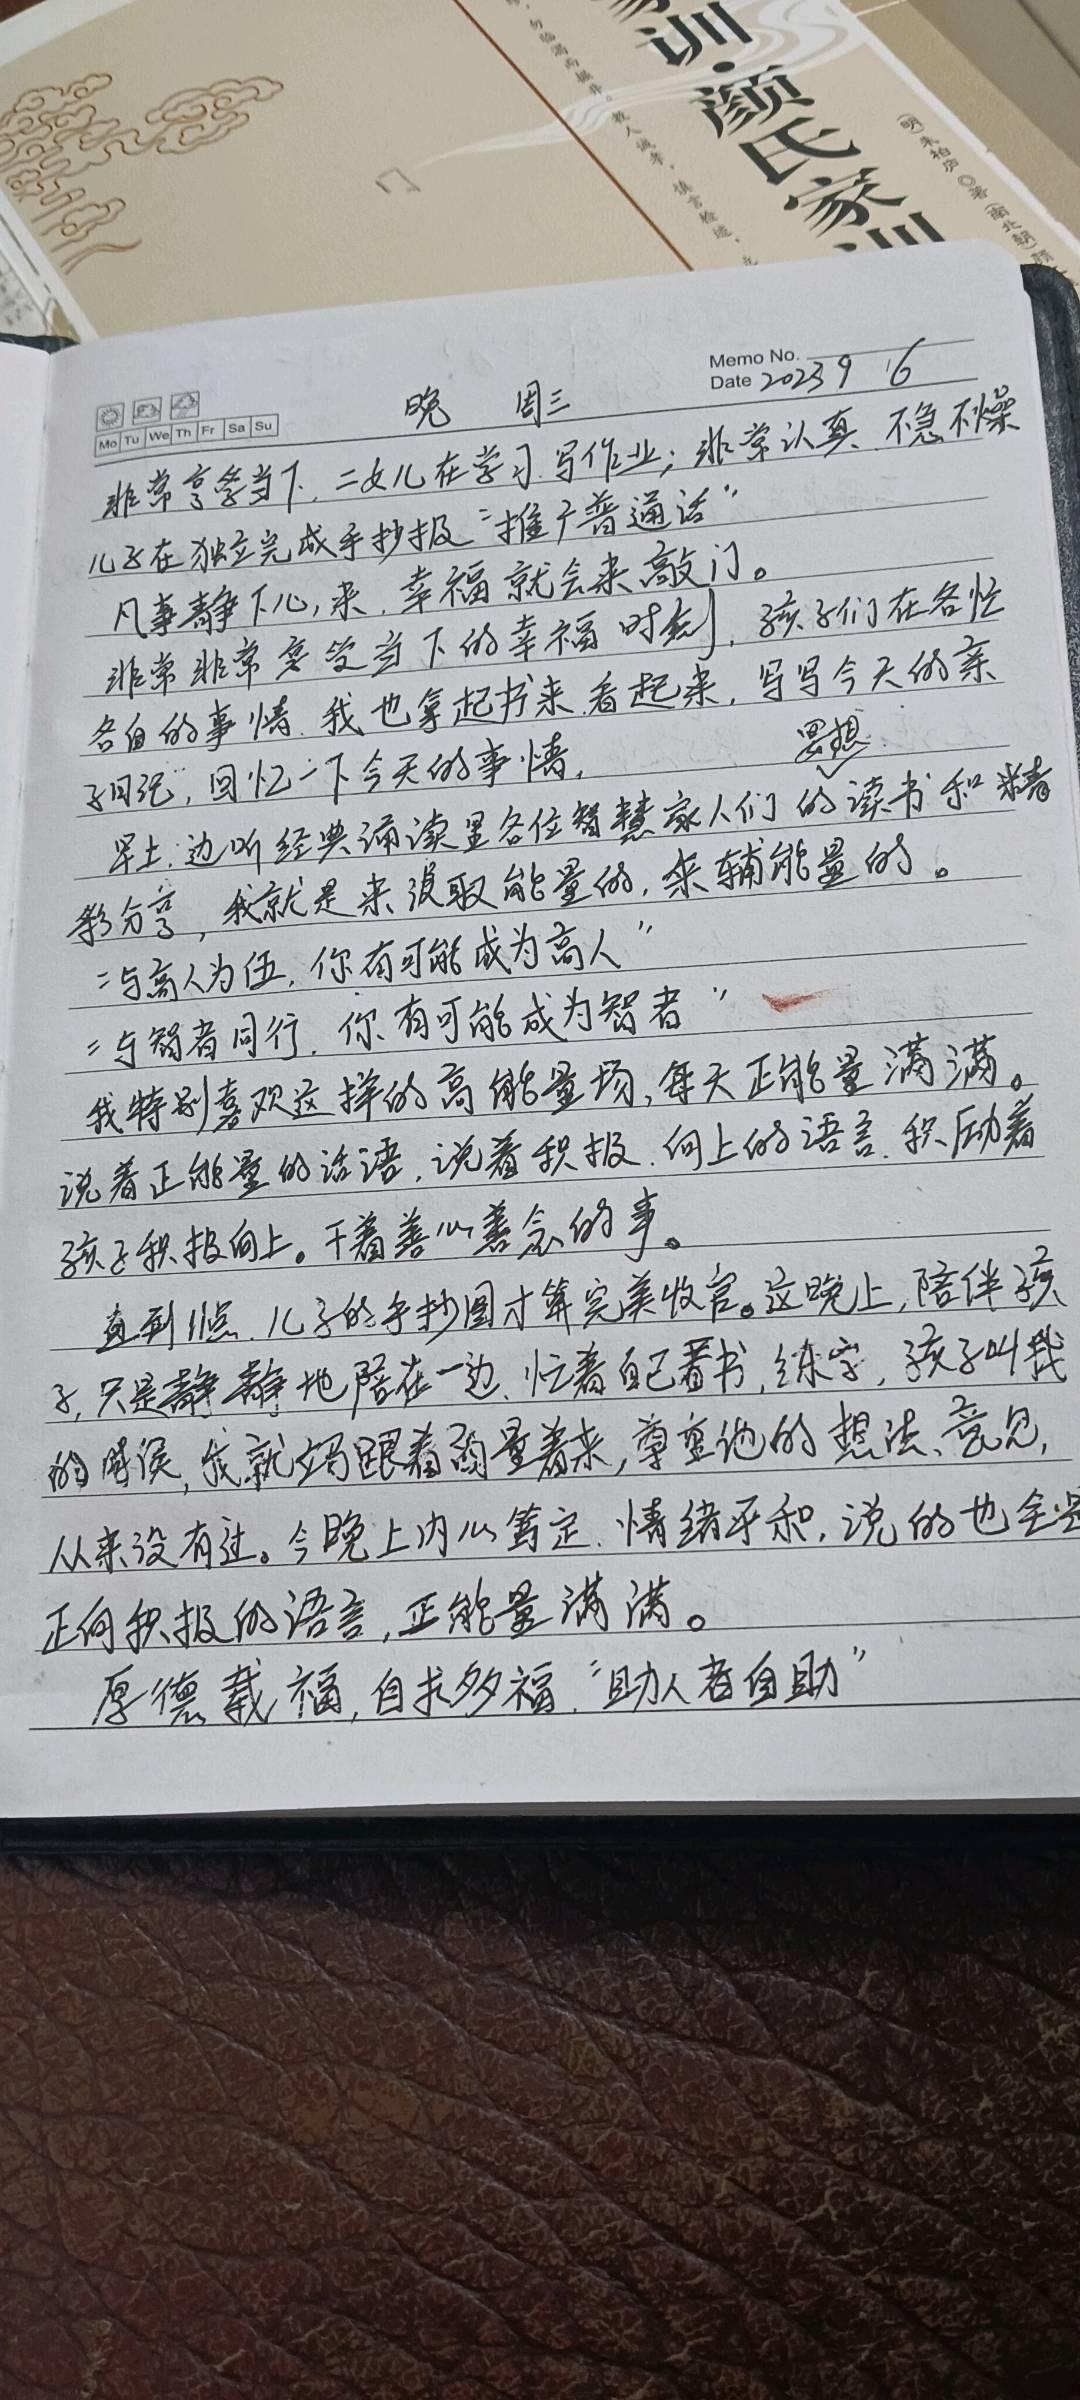 家训·颜氏家训
Memo No.
Date 2023 9 6
Mo Tu We Th Fr Sa Su
晚 周三
非常享受当下,二女儿在学习.写作业;非常认真、不急不燥
儿子在独立完成手抄报“推广普通话”
凡事静下心,来,幸福就会来敲门。
非常非常享受当下的幸福时刻,孩子们在各忙
各自的事情.我也拿起书来.看起来,写写今天的亲
子日记,回忆一下今天的事情,
思想
早上:边听经典诵读里各位智慧家人们的读书和精
彩分享,我就是来汲取能量的,来辅能量的。
“与高人为伍,你有可能成为高人”
“与智者同行.你有可能成为智者”
我特别喜欢这样的高能量场,每天正能量满满。
说着正能量的话语,说着积极.向上的语言.积励着
孩子积极向上。干着善心善念的事。
直到11点.儿子的手抄图才算完美收官。这晚上,陪伴孩
子,只是静静地陪在一边、忙着自己看书,练字,孩子叫我
的时候,我就立马跟着商量着来,尊重他的想法、意见,
从来没有过。今晚上内心笃定.情绪平和,说的也全是
正向积极的语言,正能量满满。
厚德载福,自求多福.“助人者自助”